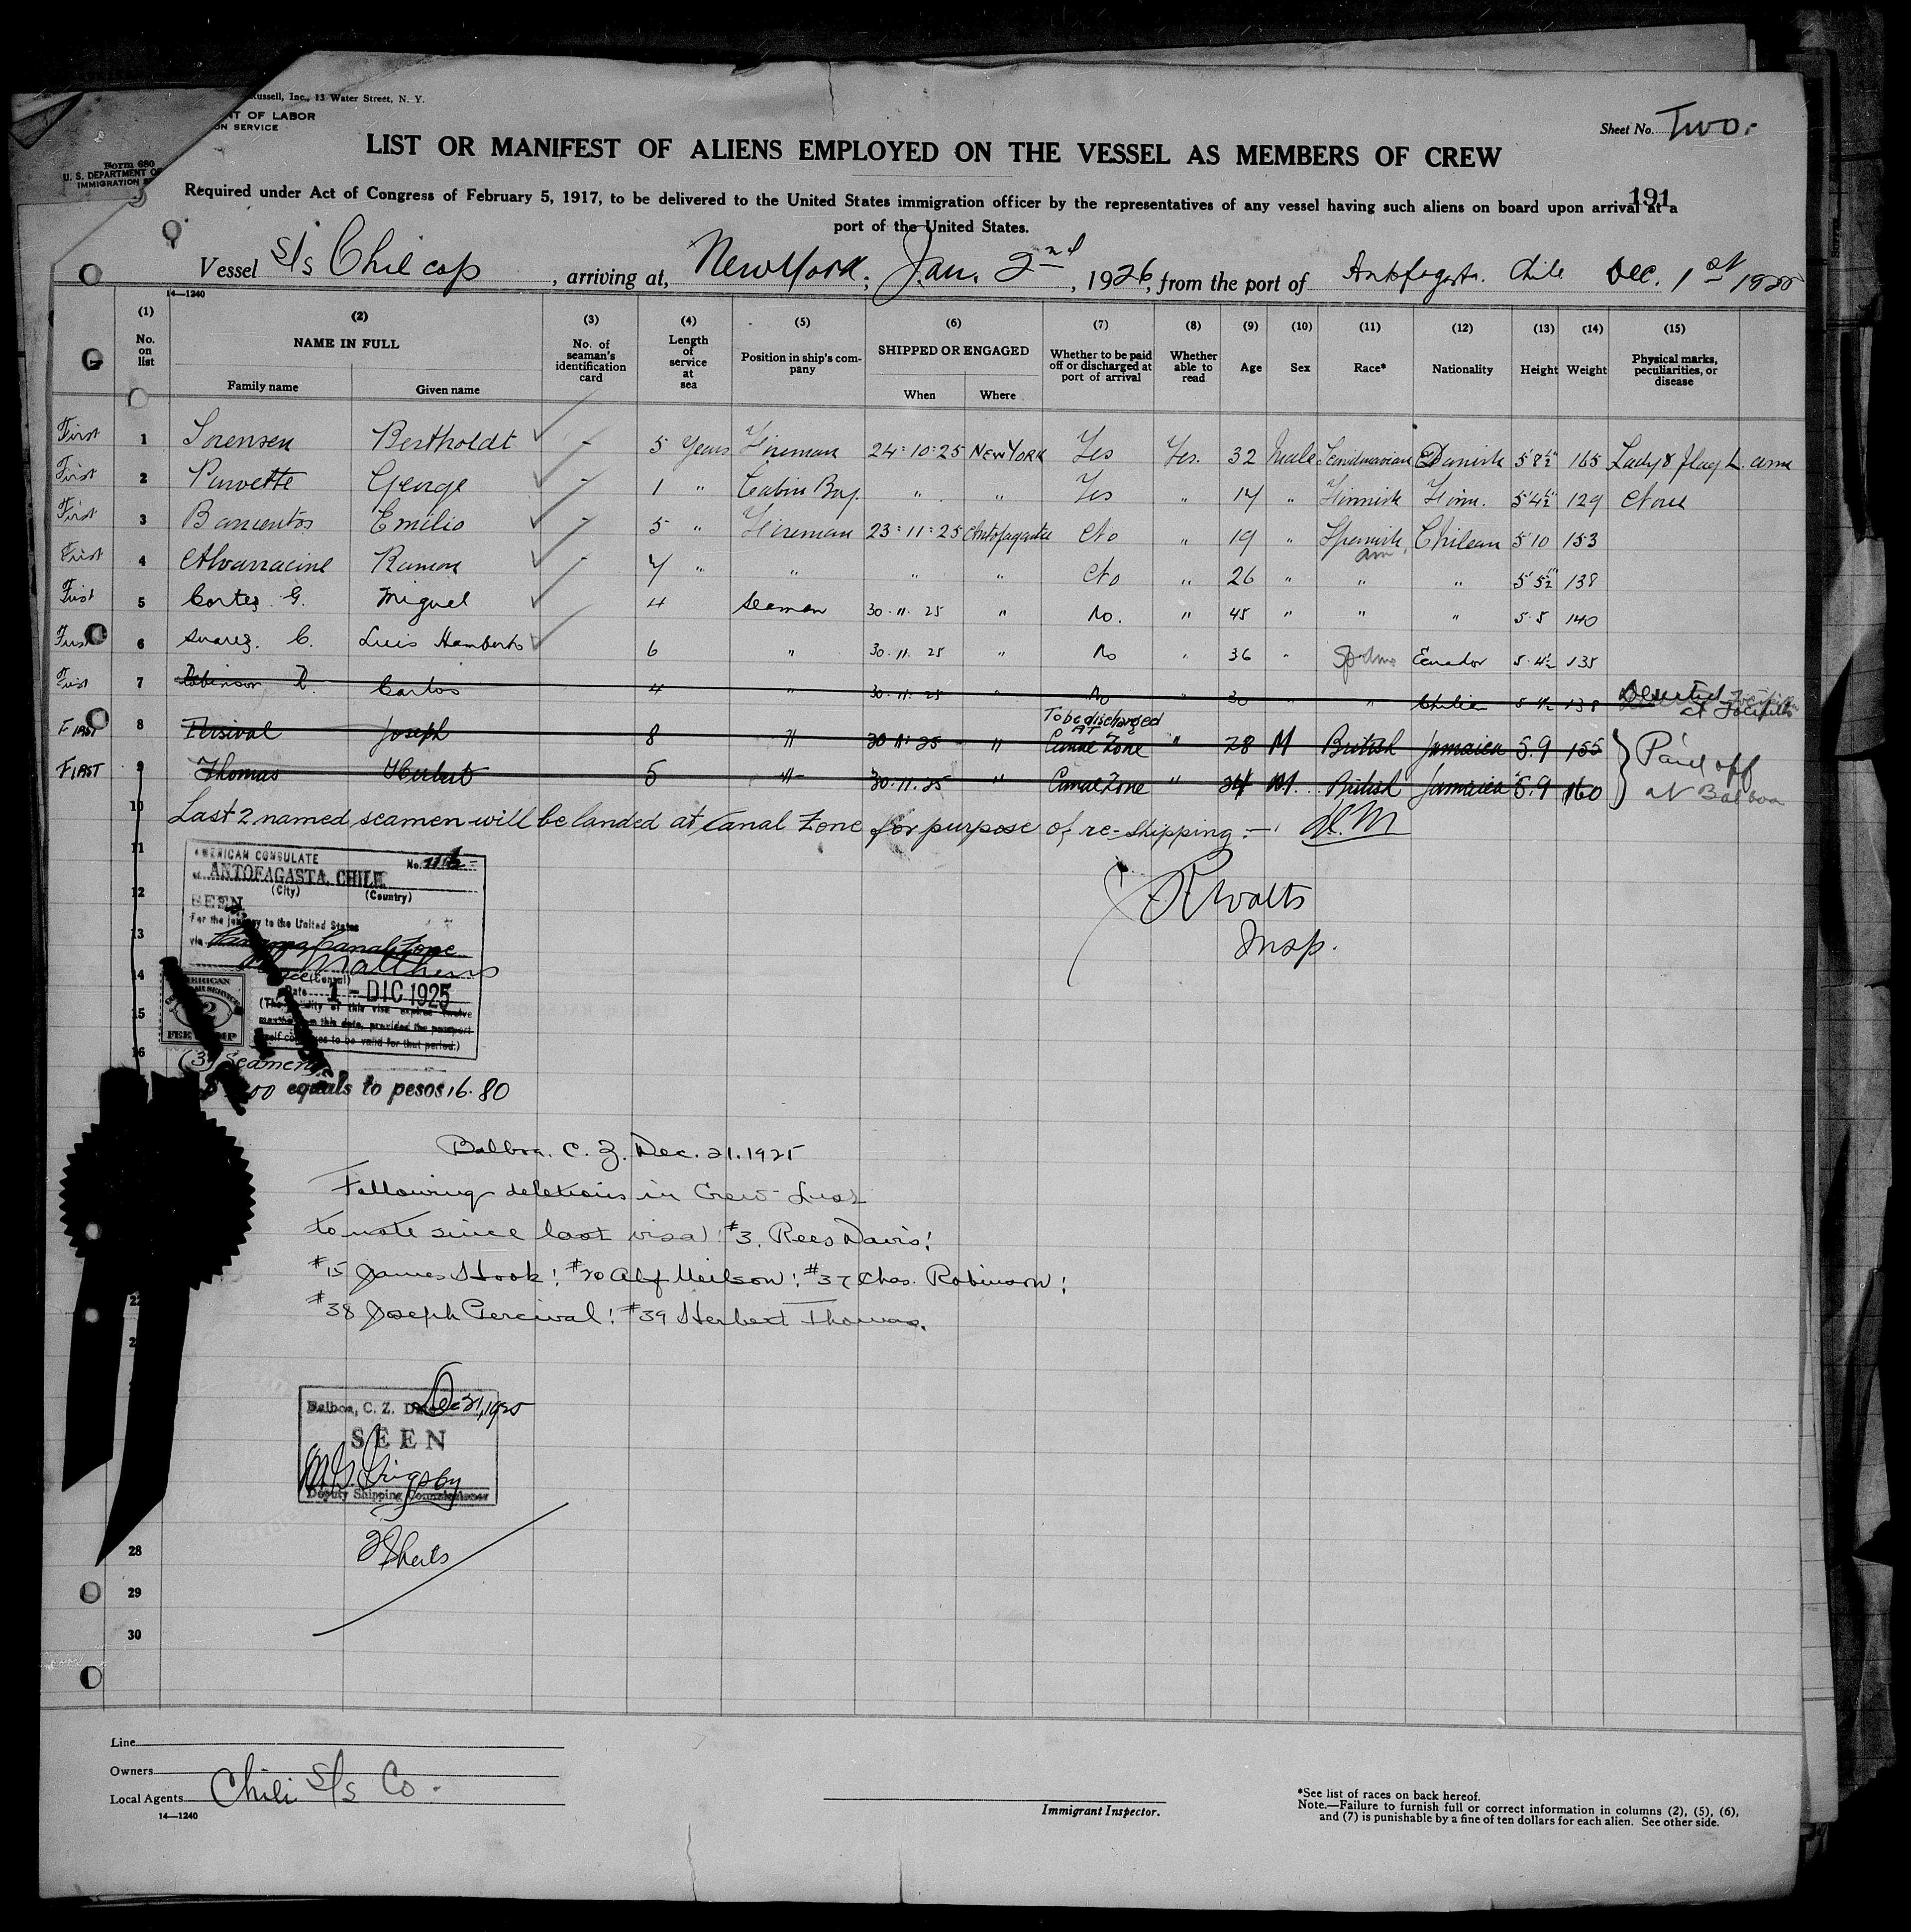 Russell, Inc., 13 Water Street, N. Y.
NT OF LABOR
ON SERVICE
Form 680
U. S. DEPARTMENT OF
IMMIGRATION
Sheet No. Two.
LIST OR MANIFEST OF ALIENS EMPLOYED ON THE VESSEL AS MEMBERS OF CREW
191
Required under Act of Congress of February 5, 1917, to be delivered to the United States immigration officer by the representatives of any vessel having such aliens on board upon arrival at a
port of the United States.
Vessel S/S Chilcop, arriving at, New York, Jan. 2nd, 1926, from the port of Antofagasta. Chile Dec. 1st 1925
14—1240
(1) (2) (3) (4) (5) (6) (7) (8) (9) (10) (11) (12) (13) (14) (15)
No. on list NAME IN FULL Family name Given name No. of seaman's identification card Length of service at sea Position in ship's company SHIPPED OR ENGAGED When Where Whether to be paid off or discharged at port of arrival Whether able to read Age Sex Race* Nationality Height Weight Physical marks, peculiarities, or disease
First 1 Sorensen Bertholdt - 5 Years Fireman 24-10-25 New York Yes Yes. 32 Male Scandinavian Danish 5 8½" 165 Lady & flag L. arm
First 2 Purvette George - 1 " Cabin Boy. " " Yes " 17 " Finnish Finn. 5'4½" 129 None
First 3 Barrientos Emilio - 5 " Fireman 23-11-25 Antofagasta No " 19 " Spanish am Chilean 5'10 153
First 4 Alvarracine Ramon - 7 " " " " No " 26 " " " 5' 5½" 138
First 5 Cortes. G. Miguel - 4 Seaman 30-11-25 " No. " 45 " " " 5-5 140
First 6 Suarez. C. Luis Humberto 6 " 30.11.25 " No " 36 " Sp Am Ecuador 5-4½ 135
First 7 Robinson R. Carlos 4 " 30.11.25 " No " 30 " " Chilean 5-4½ 138 Deserted at Tocopilla
First 8 Persival Joseph 8 " 30 11.25 " To be discharged AT Canal Zone " 28 M British Jamaica 5.9 155
First 9 Thomas Herbert 5 " 30.11.25 " Canal Zone " 34 M. British Jamaica 5.9 160
Paid off
at Balboa
10 Last 2 named seamen will be landed at Canal Zone for purpose of re-shipping.—
11
12
13
14
15
16
AMERICAN CONSULATE
No.
at ANTOFAGASTA, CHILE
(City) (Country)
SEEN
For the journey to the United States
via Panama Canal Zone
Matthews
Vice (Consul)
Date 1 - DIC 1925
(The validity of this visa expires twelve
months from this date, provided the passport
itself continues to be valid for that period.)
AMERICAN
2
FEE STAMP
(3) Seamen
equals to pesos 16.80
Walts
Insp.
Balboa. C. Z. Dec. 21. 1925
Following deletions in Crew List
to note since last visa: #3. Rees Davis;
#15 James Hook; #20 Alf Neilson; #37 Chas. Robinson;
#38 Joseph Percival; #39 Herbert Thomas.
22
Balboa, C. Z. Date Dec 21, 1925
SEEN
Grigsby
Deputy Shipping Commissioner
2 Sheets
28
29
30
Line
Owners
Local Agents Chili S/S Co.
14—1240
Immigrant Inspector.
*See list of races on back hereof.
Note.—Failure to furnish full or correct information in columns (2), (5), (6),
and (7) is punishable by a fine of ten dollars for each alien. See other side.